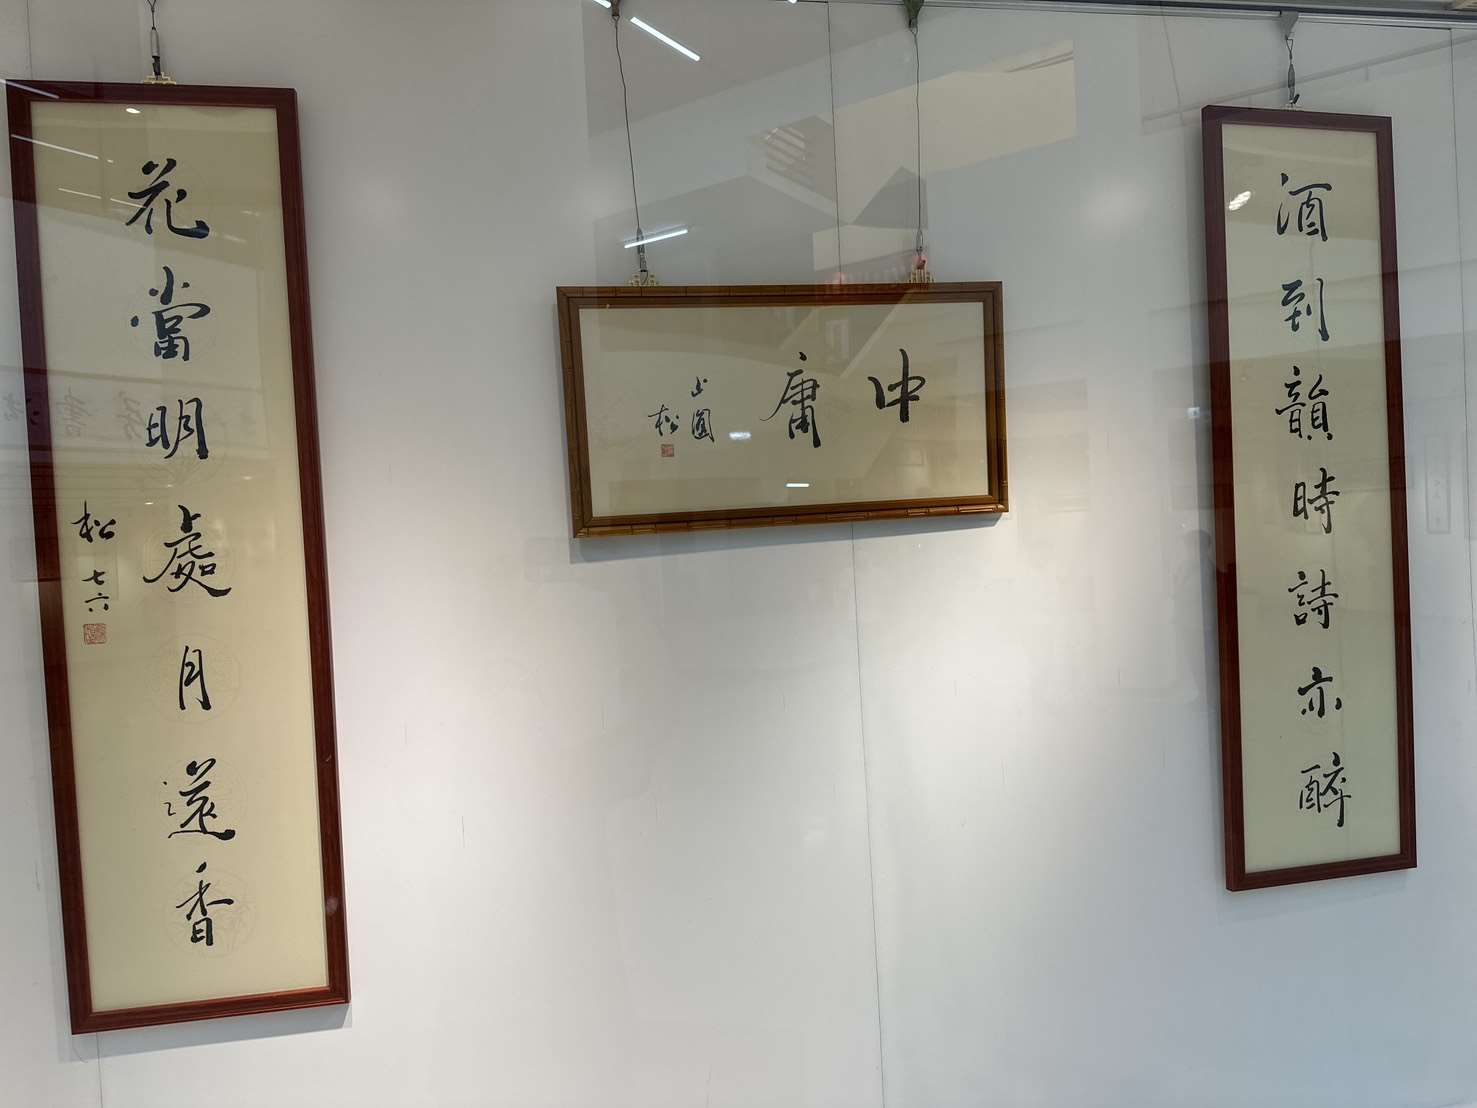 酒到韻時詩亦醉
中庸
松
花當明處月還香
松 七六